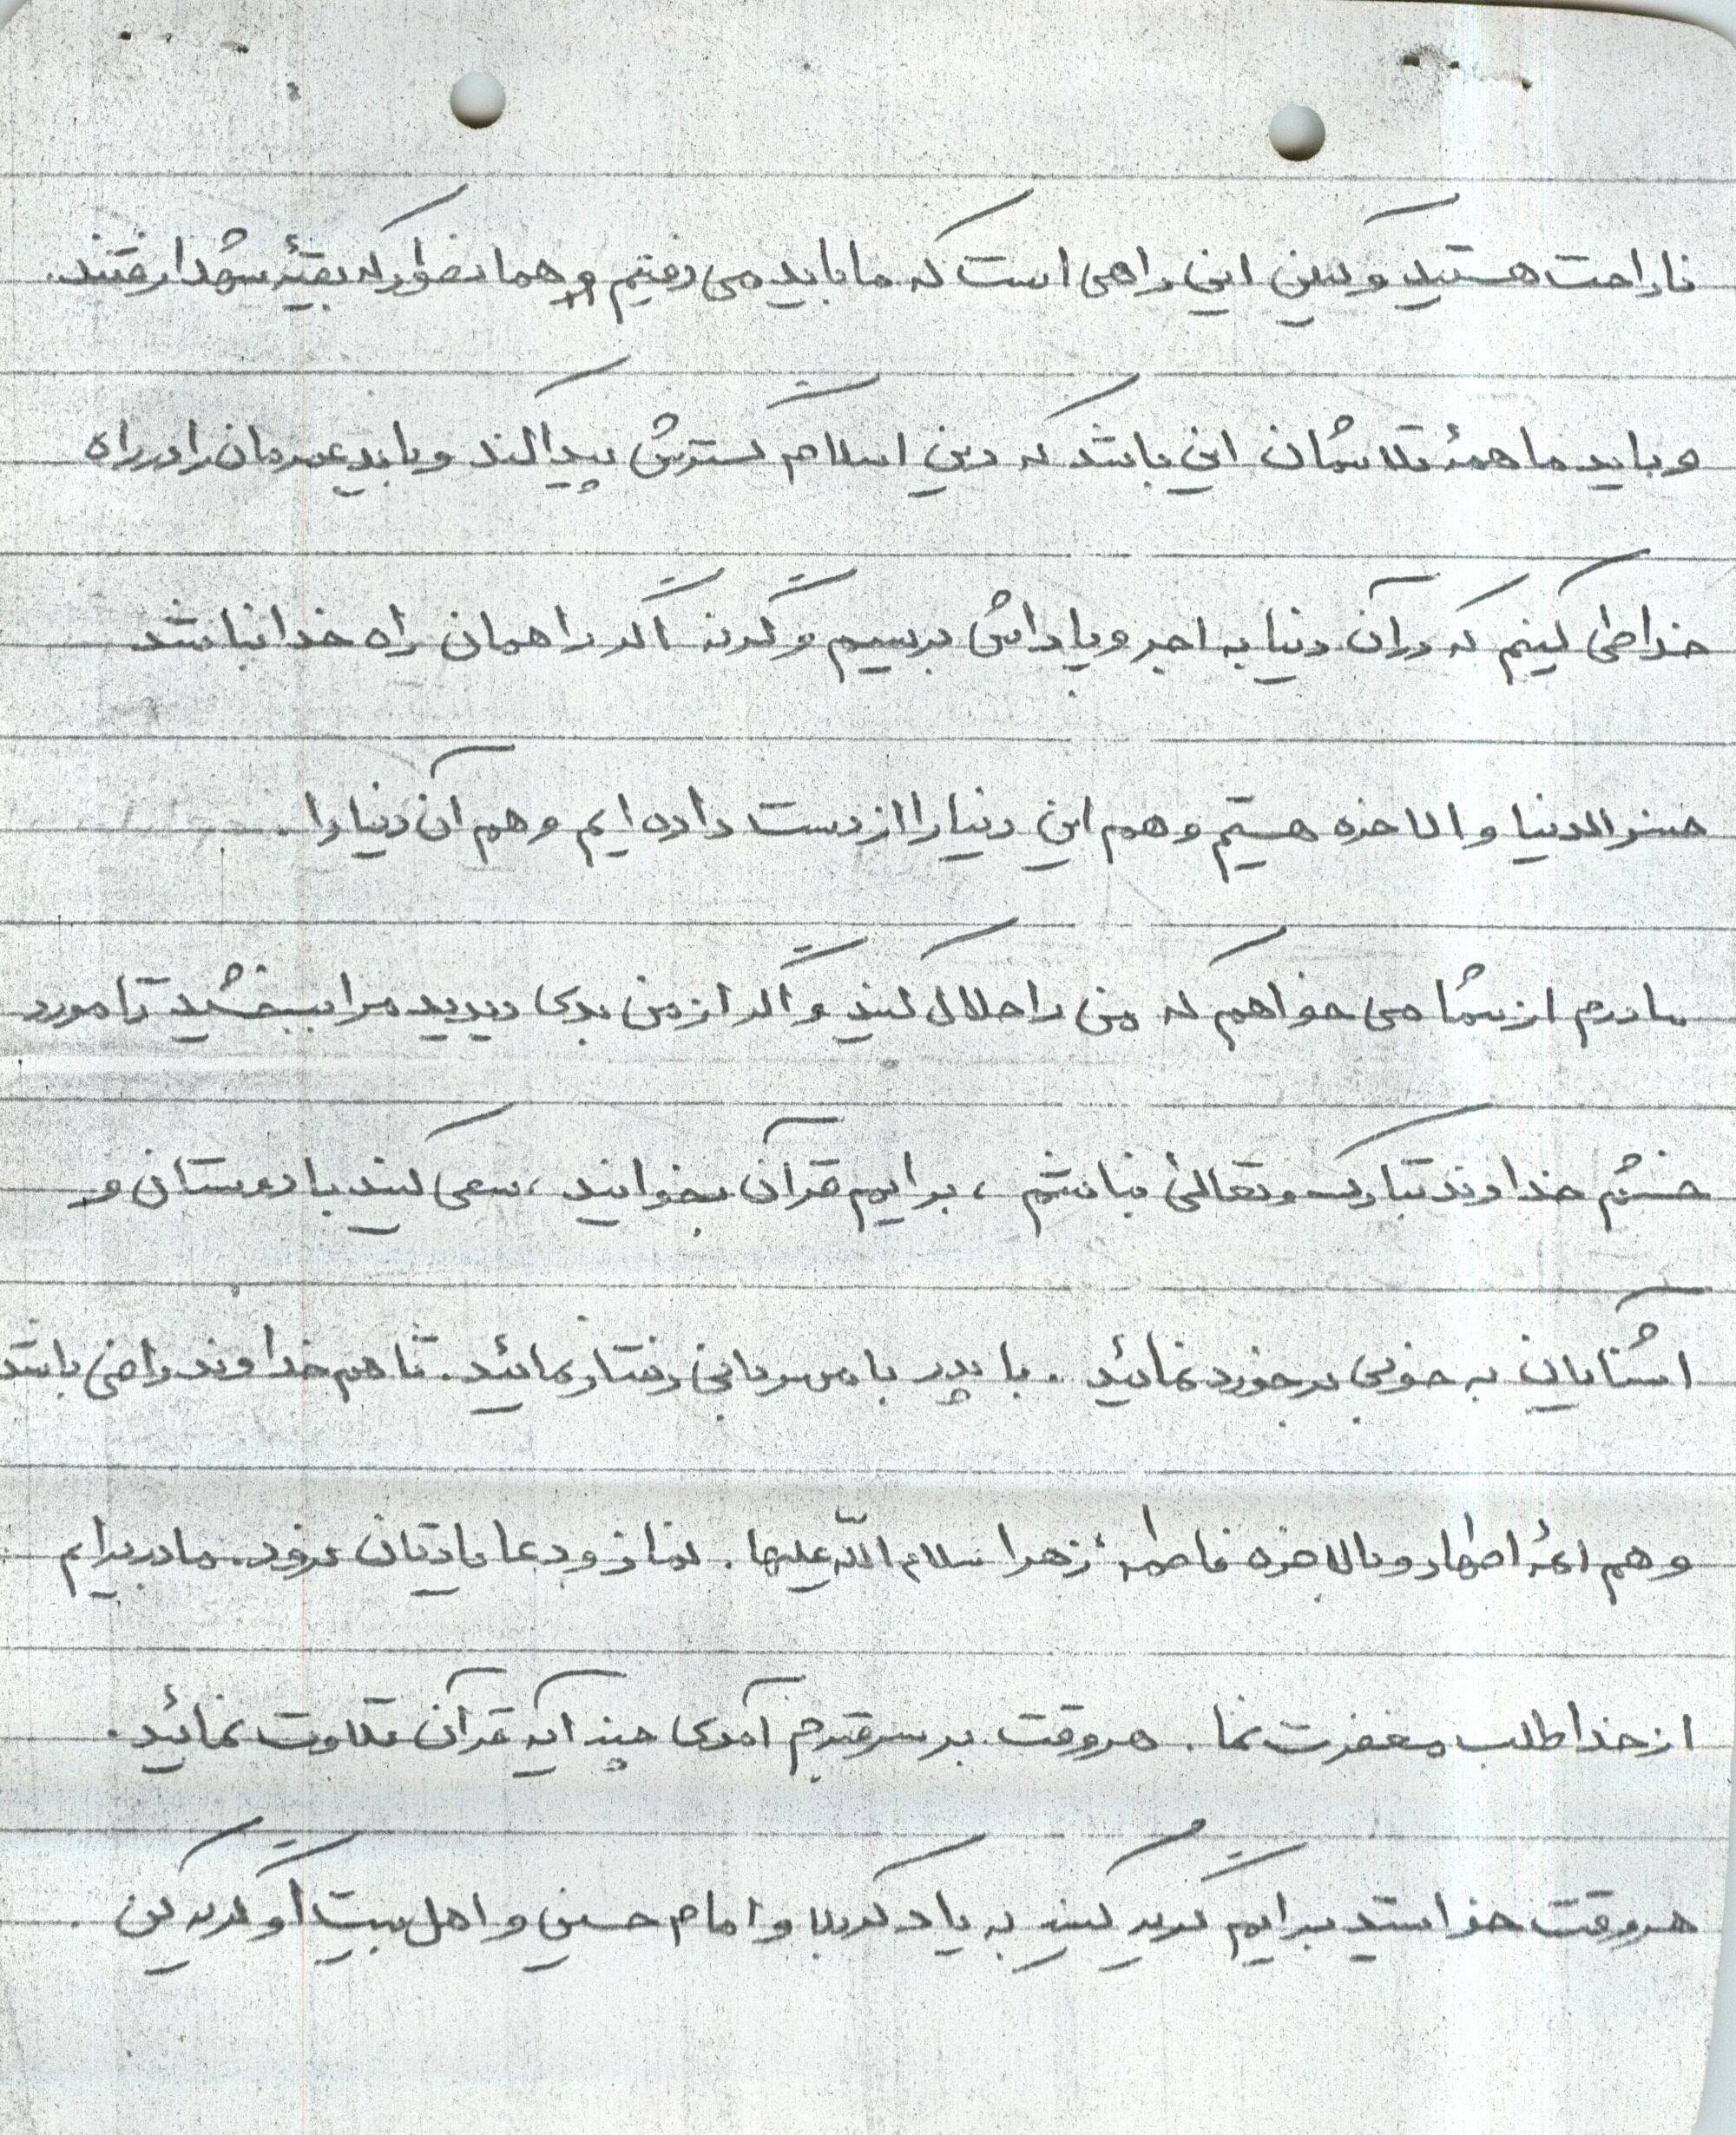 ناراحت هستید ولیکن این راهی است که ما باید می رفتیم و همانطور که بقیۀ شهدا رفتند.
و باید ما همۀ تلاشمان این باشد که دین اسلام گسترش پیدا کند و باید عمرمان را در راه
خدا طی کنیم که در آن دنیا به اجر و پاداش برسیم وگرنه اگر راهمان راه خدا نباشد
خسر الدنیا والاخره هستیم و هم این دنیا را از دست داده ایم و هم آن دنیا را.
مادرم از شما می خواهم که من را حلال کنید و اگر از من بدی دیدید مرا ببخشید تا مورد
خشم خداوند تبارک و تعالی نباشم ، برایم قرآن بخوانید ، سعی کنید با دوستان و
آشنایان به خوبی برخورد نمائید . با پدر با مهربانی رفتار نمائید. تا هم خداوند راضی باشد
و هم ائمۀ اطهار و بالاخره فاطمۀ زهرا سلام اللّه علیها . نماز و دعا یادتان نرود. مادر برایم
از خدا طلب مغفرت نما . هر وقت بر سر قبرم آمدی چند آیه قرآن تلاوت نمائید.
هر وقت خواستید برایم گریه کنید به یاد کربلا و امام حسین و اهل بیت او گریه کن .